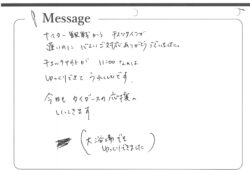 Message
ナイター観戦から チェックインが
遅いのに ていねいご対応ありがとうございました。
チェックアウトが 11:00 なのは
ゆっくりできて うれしいです。
今日も タイガースの 応援へ
いってきます
(大浴場でも
ゆっくりできました)